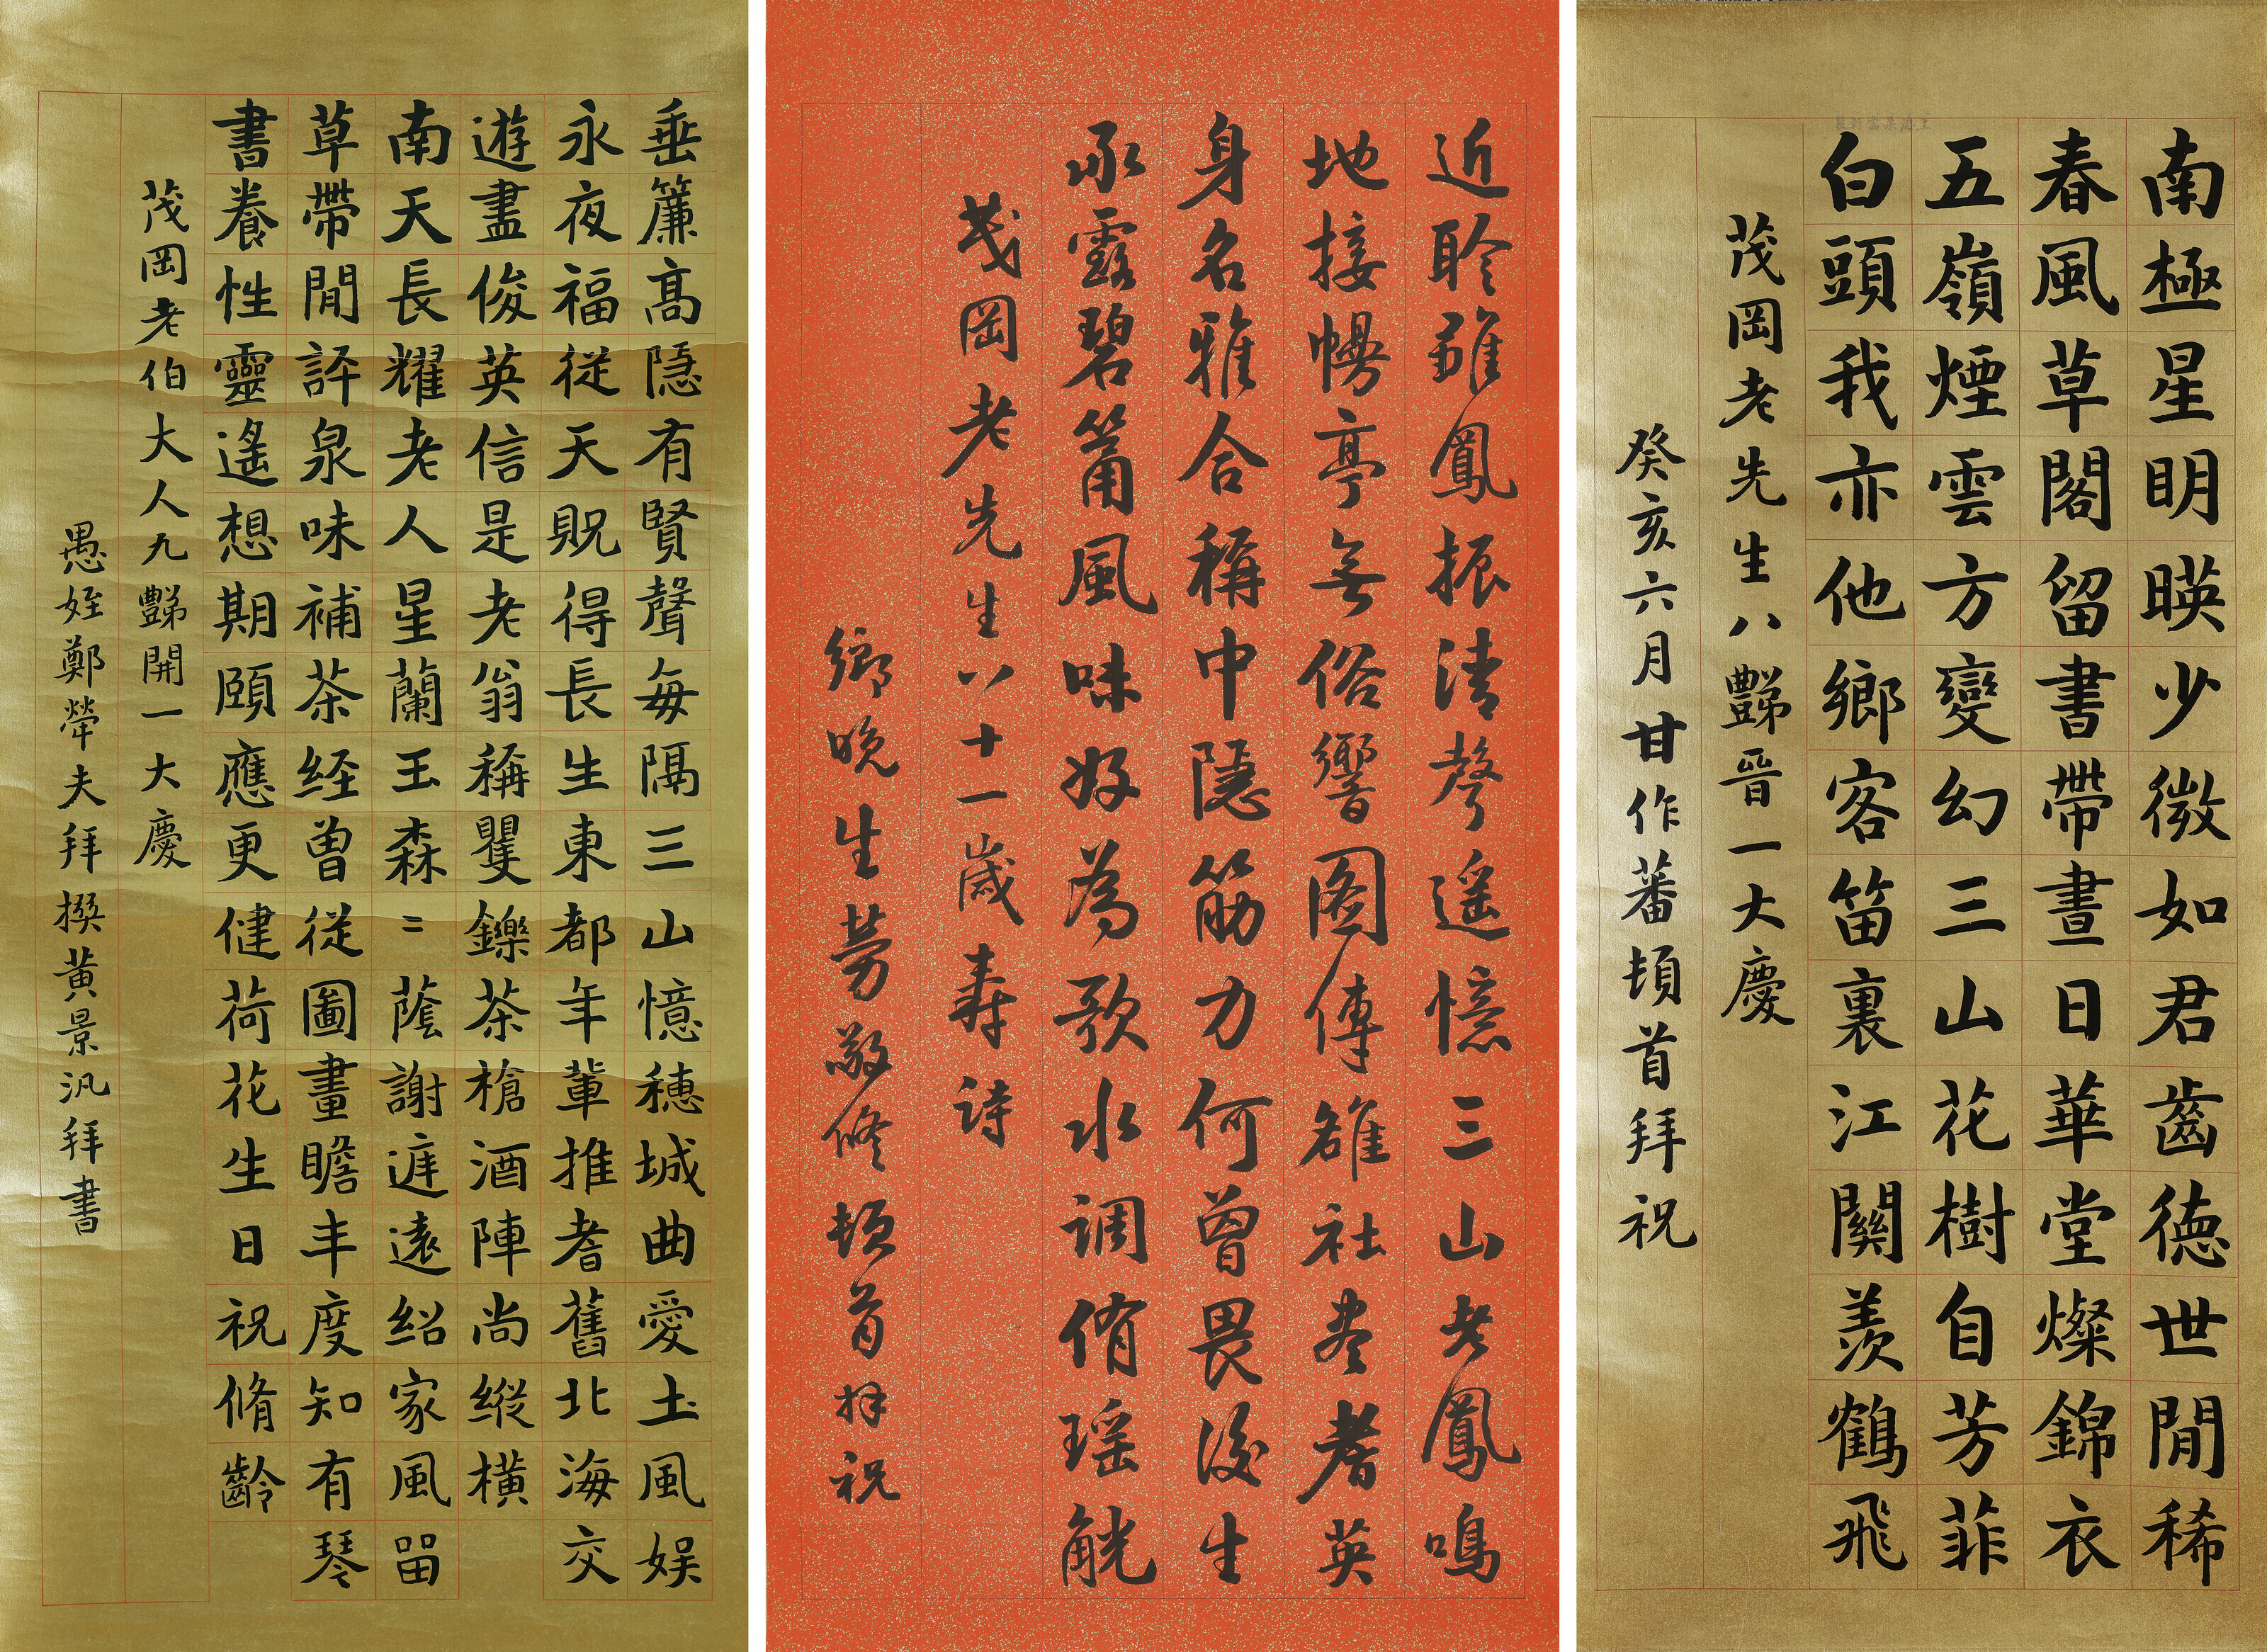 南極星明暎少微如君齒徳世閒稀
春風草閣留書帶晝日華堂燦錦衣
五嶺煙雲方變幻三山花樹自芳菲
白頭我亦他鄉客笛裏江關羨鶴飛
茂岡老先生八豑晉一大慶
癸亥六月甘作蕃頓首拜祝
近聆雛鳳振清聲遥憶三山老鳳鳴
地接幔亭無俗響图傳雒社盡耆英
身名雅合稱中隱筋力何曾畏後生
承露碧筩風味好為歌水調侑瑶觥
茂岡老先生八十一歲寿诗
鄉晚生勞敬修頓首拜祝
垂簾高隠有賢聲每隔三山憶穗城曲愛土風娱
永夜福從天貺得長生東都年輩推耆舊北海交
遊盡俊英信是老翁稱矍鑠茶槍酒陣尚縱橫
南天長耀老人星蘭玉森〻蔭謝庭遠紹家風畱
草帶閒評泉味補茶经曾從圖畫瞻丰度知有琴
書養性靈遙想期頤應更健荷花生日祝脩齡
茂岡老伯大人九豑開一大慶
愚姪鄭犖夫拜撰黄景汎拜書